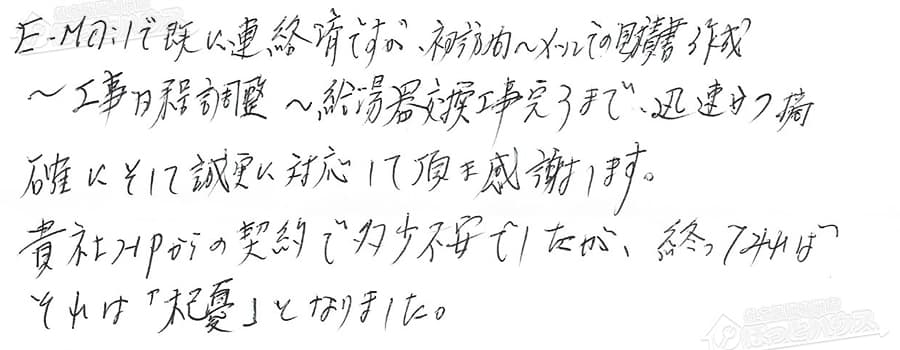 E-Mailで既に連絡済ですが、初訪問～メールでの見積書作成
～工事日程調整～給湯器交換工事完了まで、迅速かつ的
確にそして誠実に対応して頂き感謝します。
貴社HPからの契約で多少不安でしたが、終ってみれば
それは「杞憂」となりました。